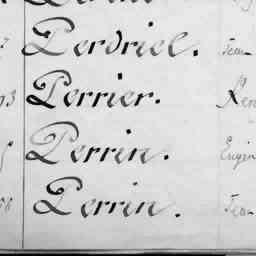 Perdriel. Jean
93 Perrier. Ren
Perrin. Eugèn
56 Perrin. Jean